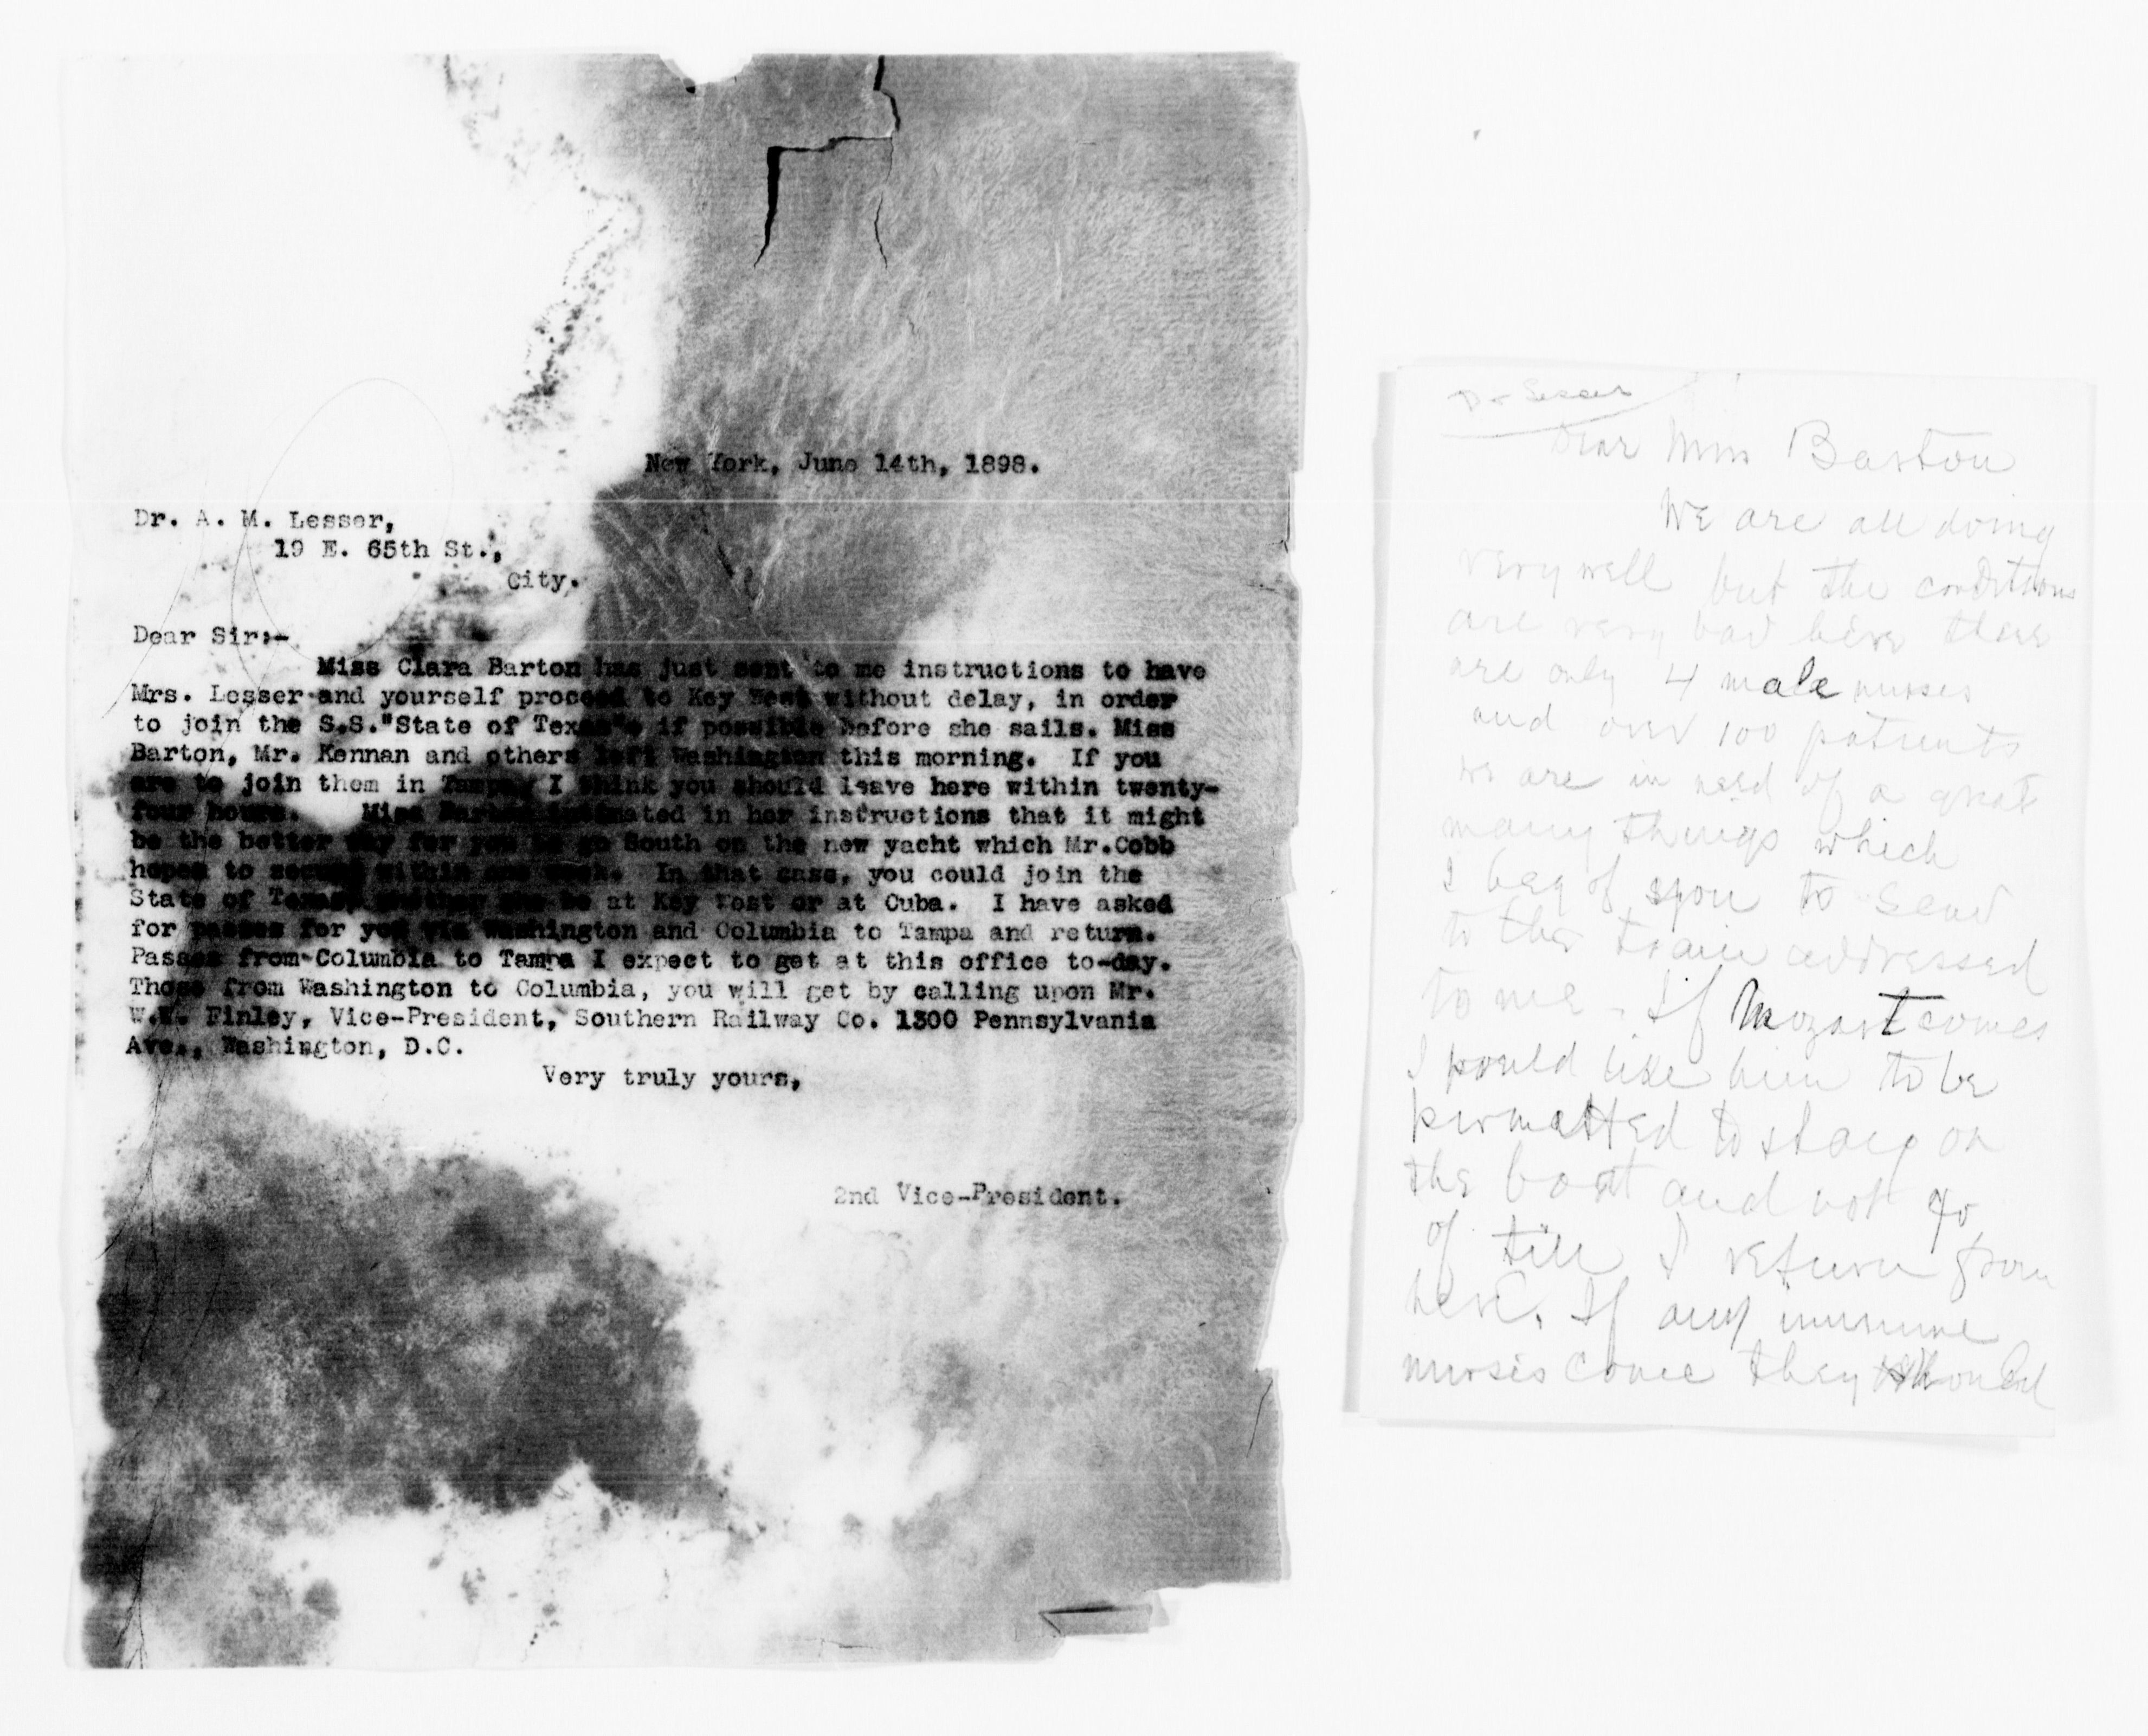 New York, June 14th, 1898.
Dr. A. M. Lesser,
19 E. 65th St.,
City.
Dear Sir:-
Miss Clara Barton has just sent to me instructions to have
Mrs. Lesser and yourself proceed to Key West without delay, in order
to join the S.S."State of Texas" if possible before she sails. Miss
Barton, Mr. Kennan and others left Washington this morning. If you
are to join them in Tampa, I think you should leave here within twenty-
four hours. Miss Barton intimated in her instructions that it might
be the better way for you to go South on the new yacht which Mr.Cobb
hopes to secure within one week. In that case, you could join the
State of Texas, whether she be at Key West or at Cuba. I have asked
for passes for you via Washington and Columbia to Tampa and return.
Passes from Columbia to Tampa I expect to get at this office to-day.
Those from Washington to Columbia, you will get by calling upon Mr.
W.W. Finley, Vice-President, Southern Railway Co. 1300 Pennsylvania
Ave., Washington, D.C.
Very truly yours,
2nd Vice-President.
Dr Lesser
Dear Miss Barton
We are all doing
very well but the conditions
are very bad here there
are only 4 male nurses
and over 100 patients
we are in need of a great
many things which
I beg of you to send
to the train addressed
to me - If Mozart comes
I would like him to be
permitted to stay on
the boat and not go
of till I return from
here. If any immune
nurses come they should